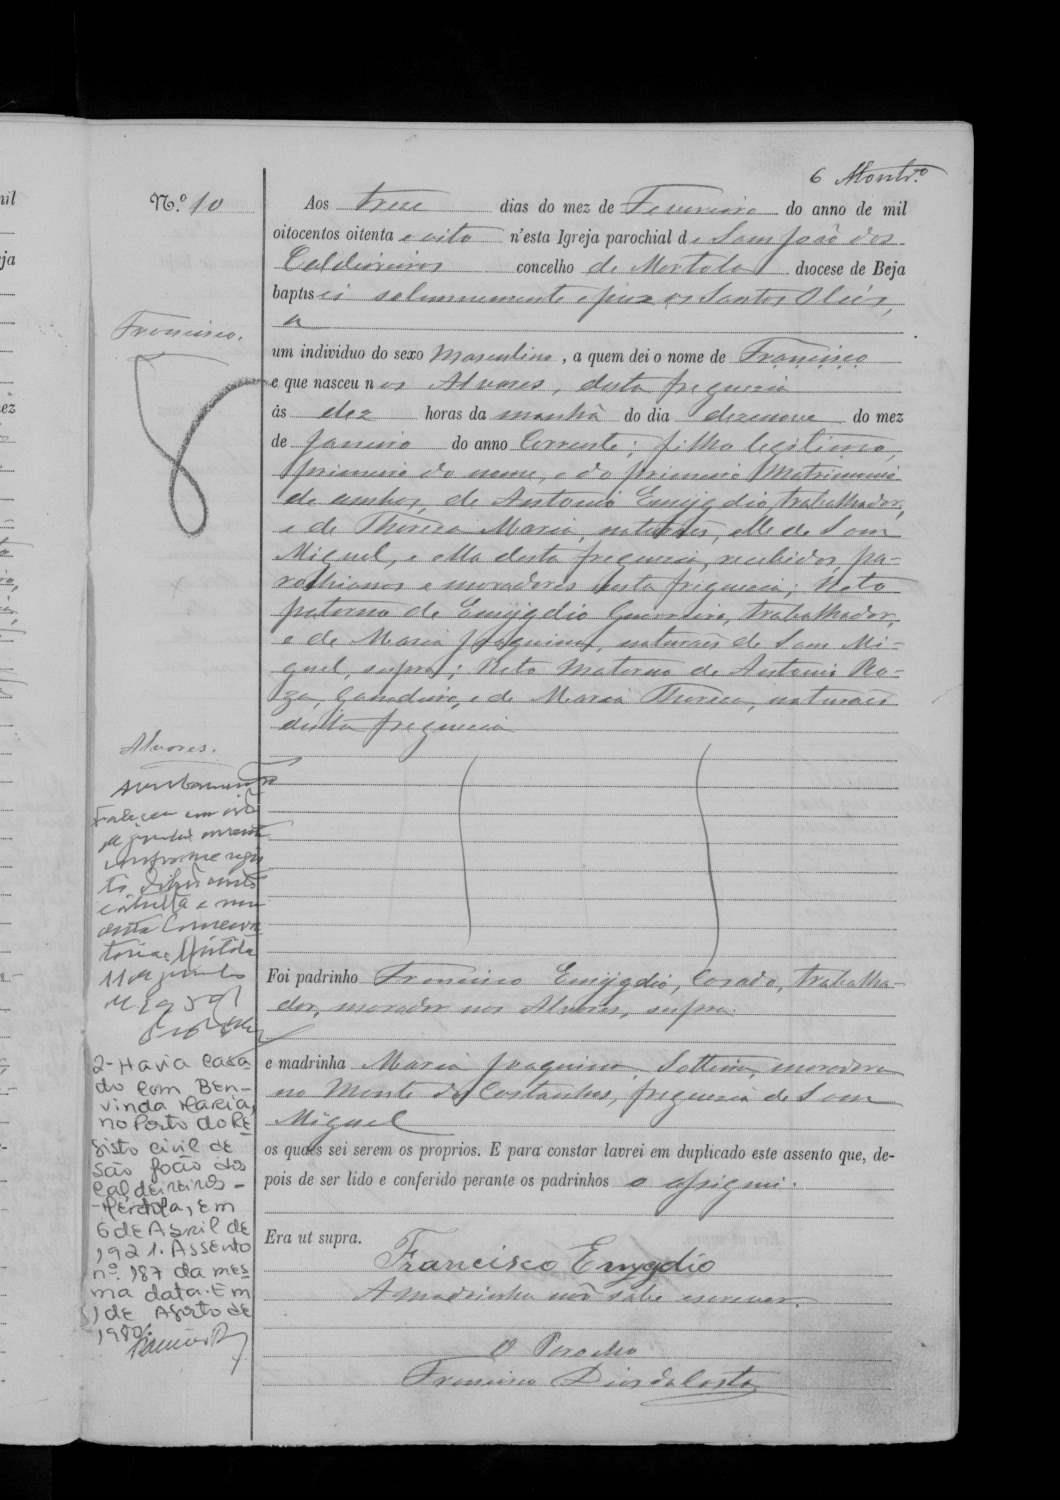 6 Montr.º
N.º 10
Francisco.
Aos treze dias do mez de Fevereiro do anno de mil
oitocentos oitenta e oito n'esta Igreja parochial de Sam João dos
Caldeireiros concelho de Mertola diocese de Beja
baptisei solemnemente e puz os Santos Oleos,
a
um individuo do sexo Masculino, a quem dei o nome de Francisco
e que nasceu nos Alvares, desta freguezia
ás dez horas da manhã do dia dezenove do mez
de Janeiro do anno Corrente; filho legitimo,
primeiro do nome, e do primeiro Matrimonio
de ambos, de Antonio Emygdio, trabalhador,
e de Thereza Maria, naturaes, elle de Sam
Miguel, e ella desta freguezia, recebidos, pa-
rochianos e moradores nesta freguezia; Neto
paterno de Emygdio Guerreiro, trabalhador,
e de Maria Joaquina, naturaes de Sam Mi-
guel, supra; Neto Materno de Antonio Ra-
za, Ganadeiro, e de Maria Thereza, naturaes
desta freguezia
Alvares.
Averbamento
Faleceu
conforme
Conserva
toria Mértola
11 de
Foi padrinho Francisco Emygdio, Casado, trabalha-
dor, morador nos Alvares, supra.
e madrinha Maria Joaquina, Solteira, moradora
no Monte das Costanhas, freguezia de Sam
Miguel
os quaes sei serem os proprios. E para constar lavrei em duplicado este assento que, de-
pois de ser lido e conferido perante os padrinhos o assignei.
Era ut supra.
Francisco Emygdio
A madrinha não sabe escrever.
O Parocho
Francisco Dias da Costa
2-Havia casa
do com Ben-
vinda Maria,
no Posto do Re
gisto civil de
são João dos
Caldeireiros -
-Mértola, em
6 de Abril de
1921. Assento
nº. 187 da mes
ma data. Em
1 de Agosto de
1980.